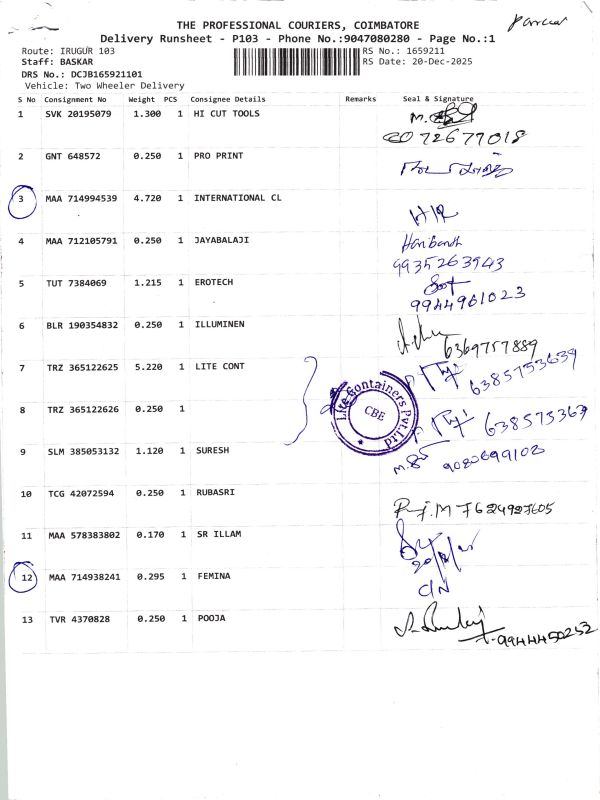 THE PROFESSIONAL COURIERS, COIMBATORE
Delivery Runsheet - P103 - Phone No.:9047080280 - Page No.:1
Route: IRUGUR 103
RS No.: 1659211
Staff: BASKAR
RS Date: 20-Dec-2025
DRS No.: DCJB165921101
Vehicle: Two Wheeler Delivery
S No Consignment No Weight PCS Consignee Details Remarks Seal & Signature
1 SVK 20195079 1.300 1 HI CUT TOOLS
72677018
2 GNT 648572 0.250 1 PRO PRINT
3 MAA 714994539 4.720 1 INTERNATIONAL CL
4 MAA 712105791 0.250 1 JAYABALAJI
9935263943
5 TUT 7384069 1.215 1 EROTECH
9944961023
6 BLR 190354832 0.250 1 ILLUMINEN
6369757889
7 TRZ 365122625 5.220 1 LITE CONT
6385753639
8 TRZ 365122626 0.250 1
Lite Containers Pvt Ltd
CBE
9 SLM 385053132 1.120 1 SURESH
10 TCG 42072594 0.250 1 RUBASRI
11 MAA 578383802 0.170 1 SR ILLAM
12 MAA 714938241 0.295 1 FEMINA
C/N
13 TVR 4370828 0.250 1 POOJA
9944450252